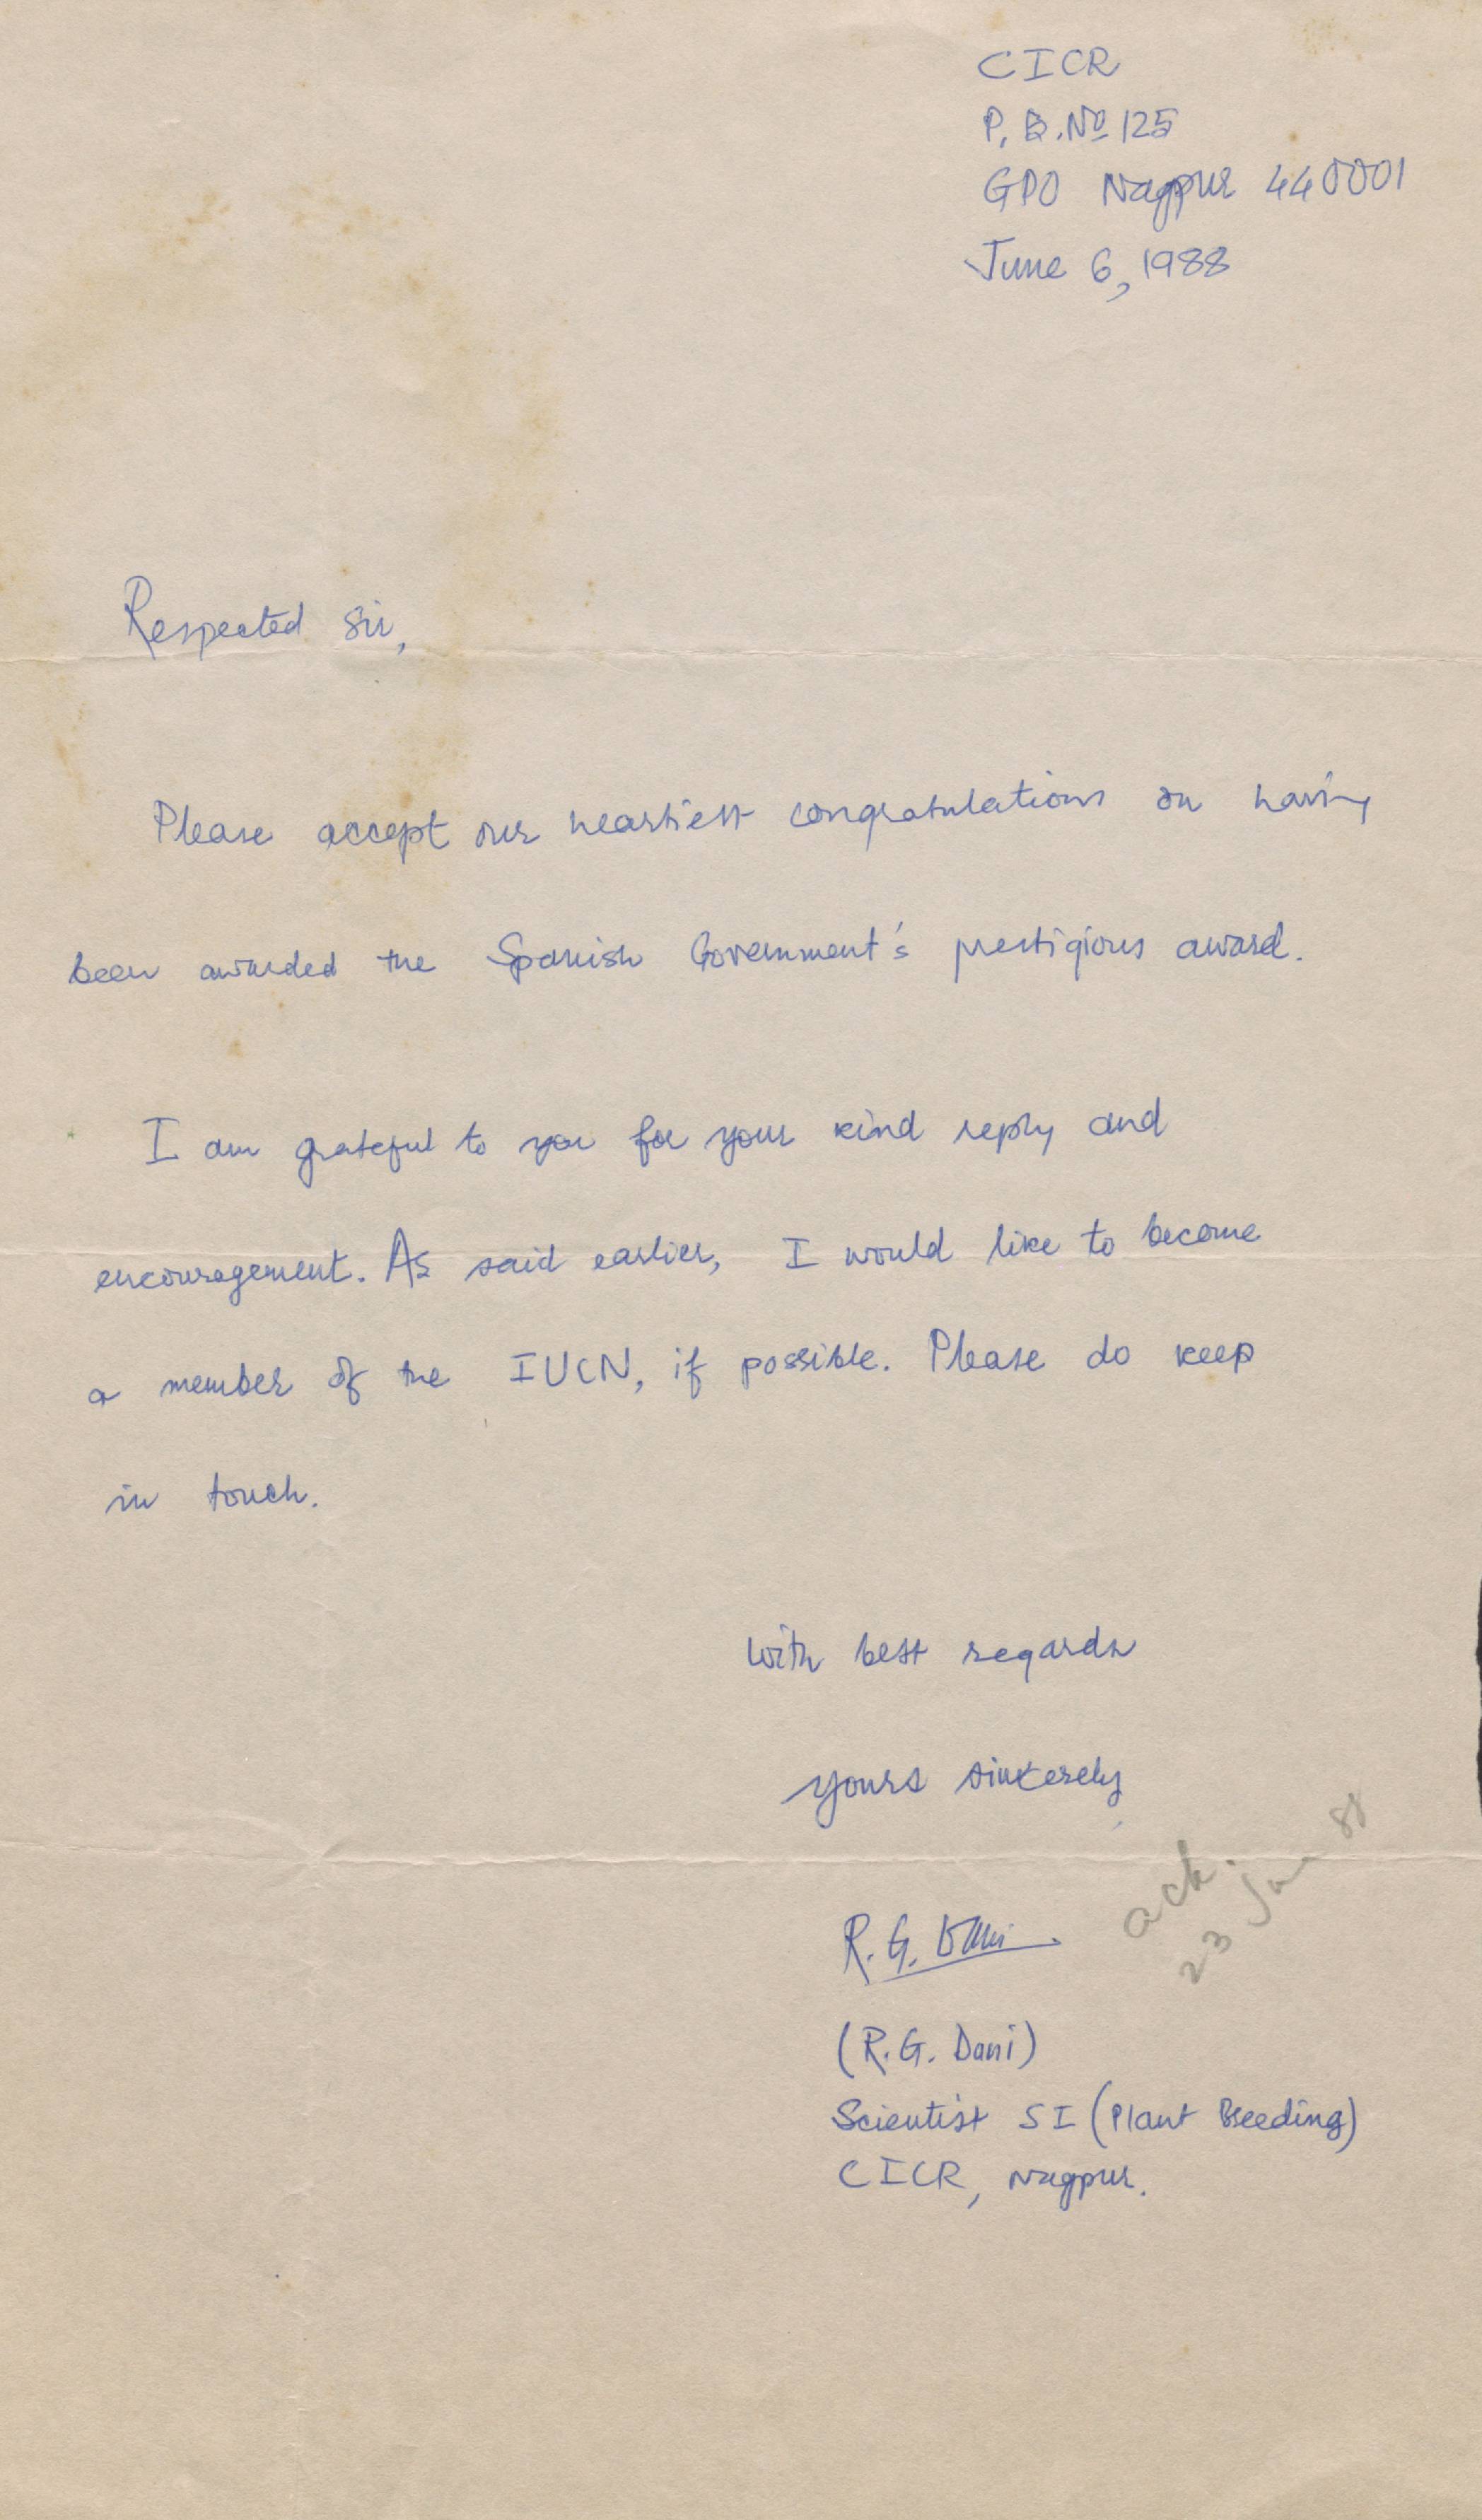 CICR
P.B.Nº 125
GPO Nagpur 440001
June 6, 1988
Respected Sir,
Please accept our heartiest congratulations on having
been awarded the Spanish Government's prestigious award.
I am grateful to you for your kind reply and
encouragement. As said earlier, I would like to become
a member of the IUCN, if possible. Please do keep
in touch.
With best regards
yours sincerely,
R.G. Dani
ack.
23 Jun 88
(R.G. Dani)
Scientist SI (Plant Breeding)
CICR, Nagpur.